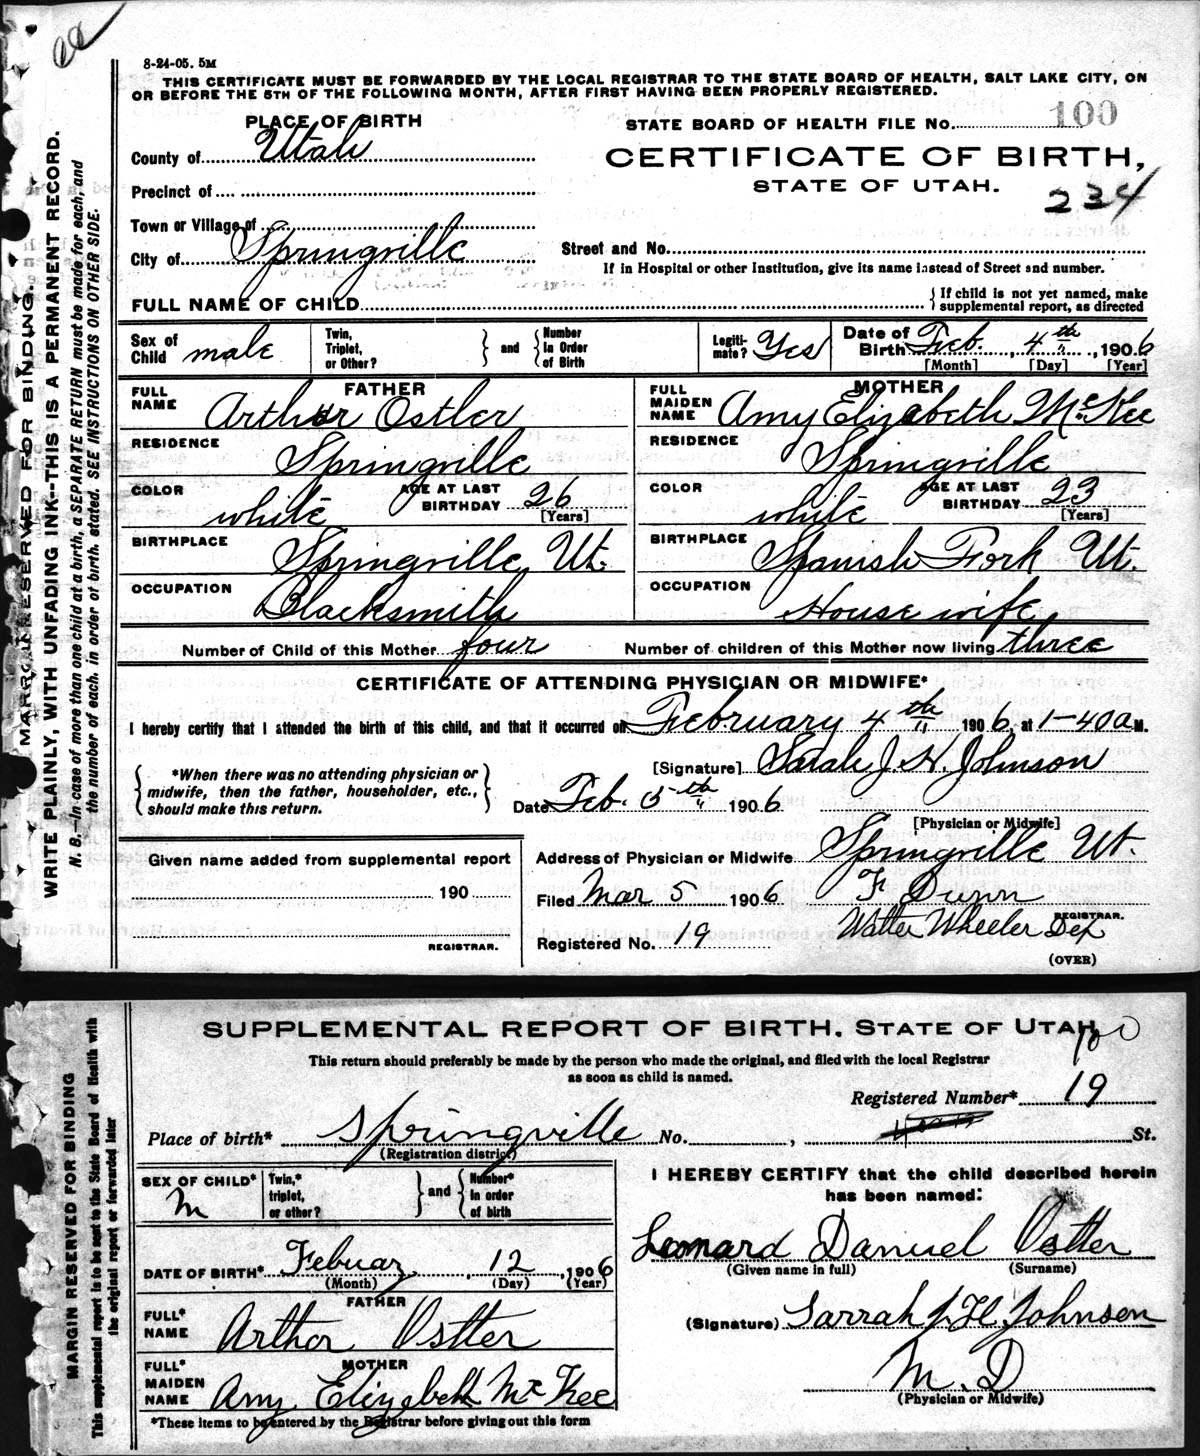 8-24-05. 5M
THIS CERTIFICATE MUST BE FORWARDED BY THE LOCAL REGISTRAR TO THE STATE BOARD OF HEALTH, SALT LAKE CITY, ON
OR BEFORE THE 5TH OF THE FOLLOWING MONTH, AFTER FIRST HAVING BEEN PROPERLY REGISTERED.
PLACE OF BIRTH
STATE BOARD OF HEALTH FILE No. 100
County of Utah
CERTIFICATE OF BIRTH,
STATE OF UTAH.
234
Precinct of
Town or Village of
City of Springville
Street and No.
If in Hospital or other Institution, give its name instead of Street and number.
FULL NAME OF CHILD
If child is not yet named, make
supplemental report, as directed
Sex of Child male
Twin, Triplet, or Other? and Number In Order of Birth
Legiti-mate? Yes
Date of Birth Feb. 4th, 1906
[Month] [Day] [Year]
FATHER
FULL NAME Arthur Ostler
MOTHER
FULL MAIDEN NAME Amy Elizabeth McKee
RESIDENCE Springville
RESIDENCE Springville
COLOR white AGE AT LAST BIRTHDAY 26 [Years]
COLOR white AGE AT LAST BIRTHDAY 23 [Years]
BIRTHPLACE Springville, Ut.
BIRTHPLACE Spanish Fork Ut.
OCCUPATION Blacksmith
OCCUPATION House wife
Number of Child of this Mother four
Number of children of this Mother now living three
CERTIFICATE OF ATTENDING PHYSICIAN OR MIDWIFE*
I hereby certify that I attended the birth of this child, and that it occurred on February 4th 1906, at 1-40 a M.
*When there was no attending physician or
midwife, then the father, householder, etc.,
should make this return.
[Signature] Sarah J. H. Johnson
Date Feb. 5th 1906
[Physician or Midwife]
Given name added from supplemental report
190
REGISTRAR.
Address of Physician or Midwife Springville Ut.
Filed Mar 5 1906
F Dunn
REGISTRAR.
Walter Wheeler Dep
Registered No. 19
(OVER)
MARGIN RESERVED FOR BINDING.
WRITE PLAINLY, WITH UNFADING INK--THIS IS A PERMANENT RECORD.
N. B.—In case of more than one child at a birth, a SEPARATE RETURN must be made for each, and
the number of each, in order of birth, stated. SEE INSTRUCTIONS ON OTHER SIDE.
SUPPLEMENTAL REPORT OF BIRTH, STATE OF UTAH
100
This return should preferably be made by the person who made the original, and filed with the local Registrar
as soon as child is named.
Registered Number* 19
Place of birth* Springville No. , St.
(Registration district)
SEX OF CHILD* M
Twin,* triplet, or other? and Number* In order of birth
DATE OF BIRTH* Februar, 12, 1906
(Month) (Day) (Year)
FATHER
FULL* NAME Arthor Ostler
MOTHER
FULL* MAIDEN NAME Amy Elizabeth McKee
*These items to be entered by the Registrar before giving out this form
I HEREBY CERTIFY that the child described herein
has been named:
Leonard Danuel Ostler
(Given name in full) (Surname)
(Signature) Sarrah J. H. Johnson
M. D
(Physician or Midwife)
MARGIN RESERVED FOR BINDING
This supplemental report is to be sent to the State Board of Health with
the original report or forwarded later